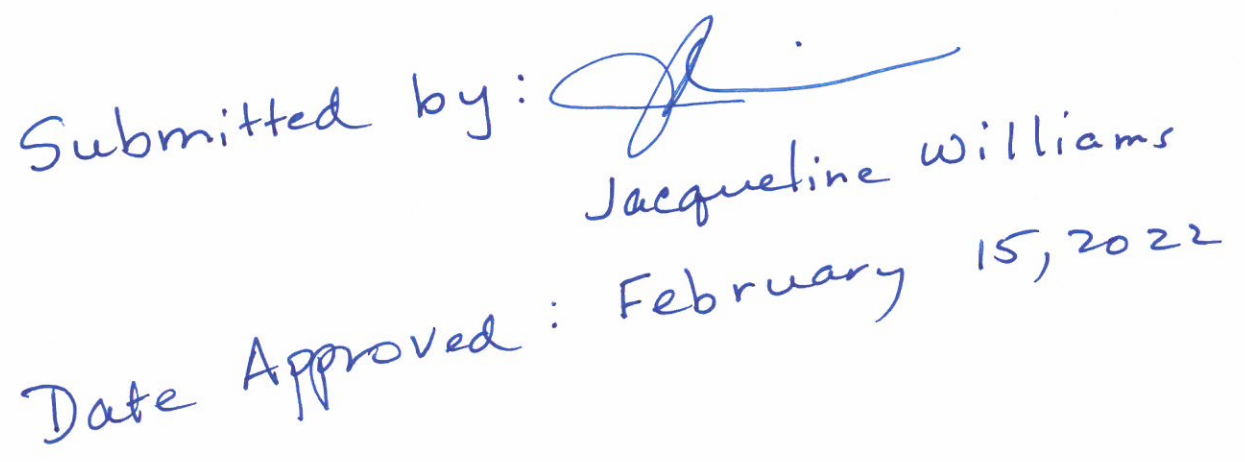 Submitted by:
Jacqueline Williams
Date Approved: February 15, 2022